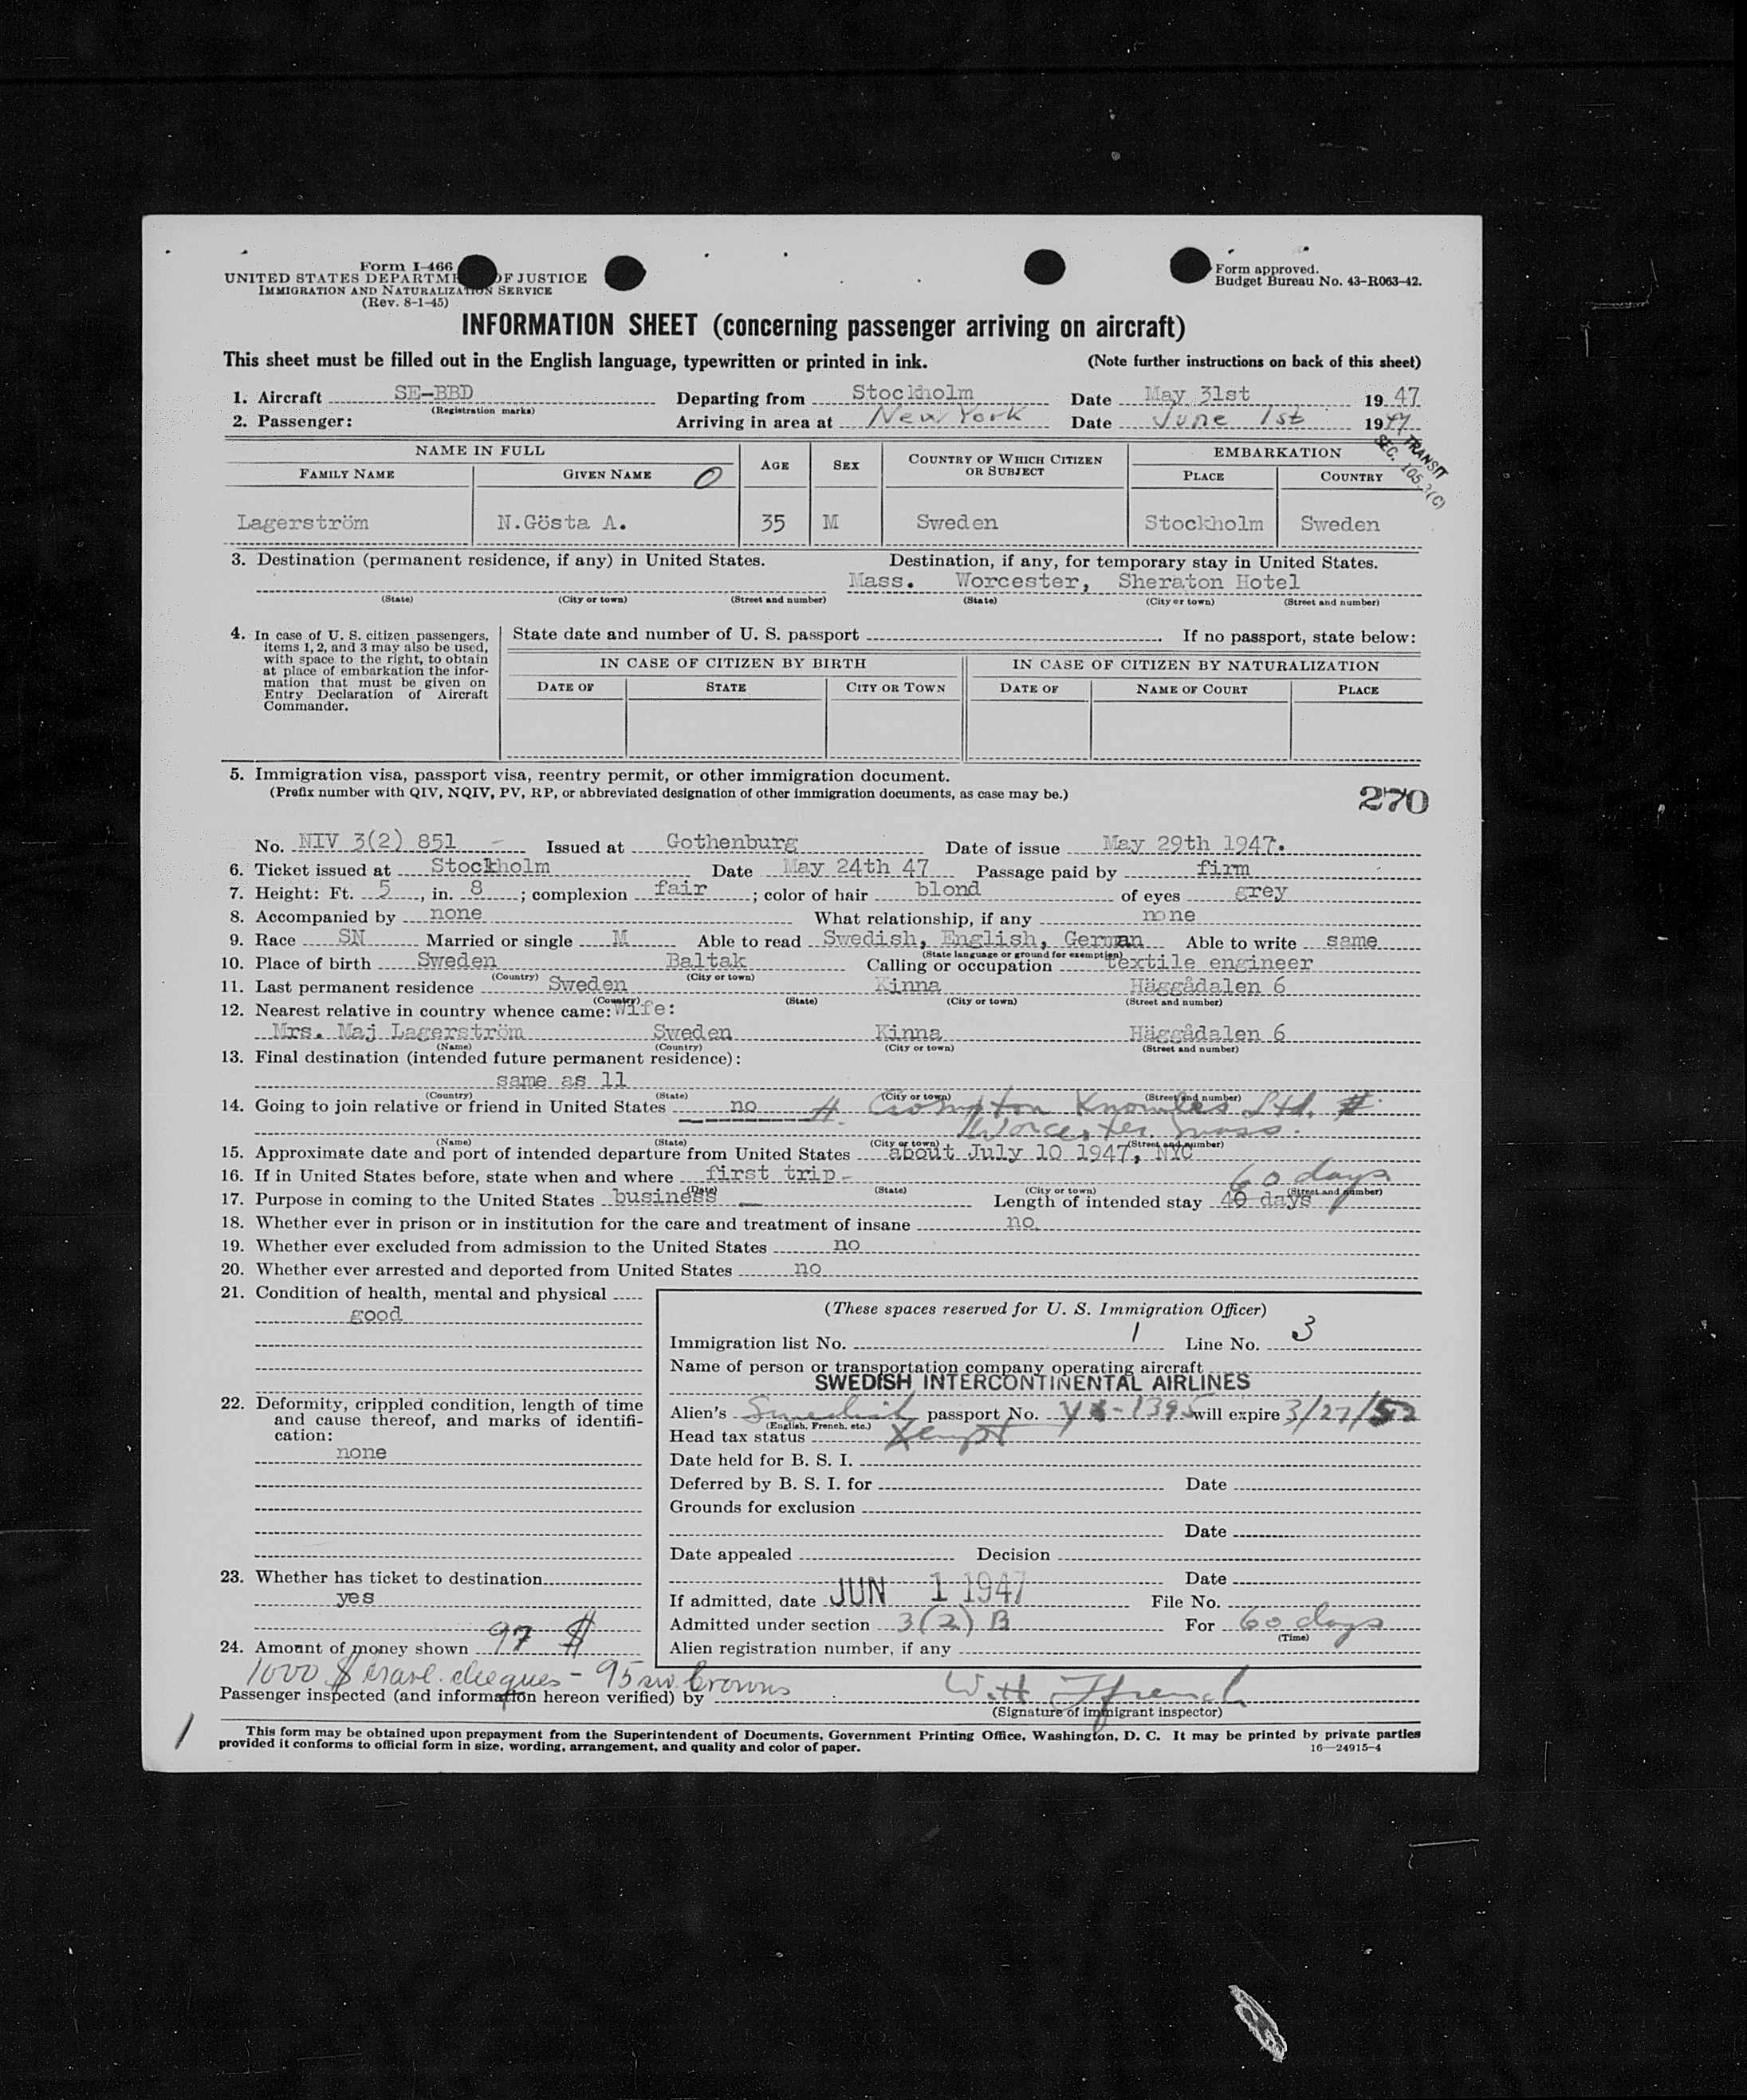 Form I-466
UNITED STATES DEPARTMENT OF JUSTICE
IMMIGRATION AND NATURALIZATION SERVICE
(Rev. 8-1-45)
Form approved.
Budget Bureau No. 43-R063-42.
INFORMATION SHEET (concerning passenger arriving on aircraft)
This sheet must be filled out in the English language, typewritten or printed in ink. (Note further instructions on back of this sheet)
1. Aircraft SE-BBD Departing from Stockholm Date May 31st 19 47
(Registration marks)
2. Passenger: Arriving in area at New York Date June 1st 1947
TRANSIT
SEC. 105.3(C)
NAME IN FULL AGE SEX COUNTRY OF WHICH CITIZEN OR SUBJECT EMBARKATION
FAMILY NAME GIVEN NAME O PLACE COUNTRY
Lagerström N.Gösta A. 35 M Sweden Stockholm Sweden
3. Destination (permanent residence, if any) in United States. Destination, if any, for temporary stay in United States.
Mass. Worcester, Sheraton Hotel
(State) (City or town) (Street and number) (State) (City or town) (Street and number)
4. In case of U. S. citizen passengers, items 1, 2, and 3 may also be used, with space to the right, to obtain at place of embarkation the information that must be given on Entry Declaration of Aircraft Commander.
State date and number of U. S. passport . If no passport, state below:
IN CASE OF CITIZEN BY BIRTH IN CASE OF CITIZEN BY NATURALIZATION
DATE OF STATE CITY OR TOWN DATE OF NAME OF COURT PLACE
5. Immigration visa, passport visa, reentry permit, or other immigration document.
(Prefix number with QIV, NQIV, PV, RP, or abbreviated designation of other immigration documents, as case may be.)
270
No. NIV 3(2) 851 - Issued at Gothenburg Date of issue May 29th 1947.
6. Ticket issued at Stockholm Date May 24th 47 Passage paid by firm
7. Height: Ft. 5, in. 8; complexion fair; color of hair blond of eyes grey
8. Accompanied by none What relationship, if any none
9. Race SN Married or single M Able to read Swedish, English, German Able to write same
(State language or ground for exemption)
10. Place of birth Sweden Baltak Calling or occupation textile engineer
(Country) (City or town)
11. Last permanent residence Sweden Kinna Häggådalen 6
(Country) (State) (City or town) (Street and number)
12. Nearest relative in country whence came: Wife:
Mrs. Maj Lagerström Sweden Kinna Häggådalen 6
(Name) (Country) (City or town) (Street and number)
13. Final destination (intended future permanent residence):
same as 11
(Country) (State) (City or town) (Street and number)
14. Going to join relative or friend in United States no # Crompton Knowles Ltd. #
Worcester, Mass.
(Name) (State) (City or town) (Street and number)
15. Approximate date and port of intended departure from United States about July 10 1947, NYC
16. If in United States before, state when and where first trip - 60 days
(Date) (State) (City or town) (Street and number)
17. Purpose in coming to the United States business Length of intended stay 40 days
18. Whether ever in prison or in institution for the care and treatment of insane no
19. Whether ever excluded from admission to the United States no
20. Whether ever arrested and deported from United States no
21. Condition of health, mental and physical
good
22. Deformity, crippled condition, length of time and cause thereof, and marks of identification:
none
23. Whether has ticket to destination
yes
24. Amount of money shown 97 $
1000 $ travl. cheques - 95 sw. crowns
(These spaces reserved for U. S. Immigration Officer)
Immigration list No. 1 Line No. 3
Name of person or transportation company operating aircraft
SWEDISH INTERCONTINENTAL AIRLINES
Alien's Swedish passport No. -1395 will expire 3/27/52
(English, French, etc.)
Head tax status Xempt
Date held for B. S. I.
Deferred by B. S. I. for Date
Grounds for exclusion
Date
Date appealed Decision
Date
If admitted, date JUN 1 1947 File No.
Admitted under section 3(2) B For 60 days
(Time)
Alien registration number, if any
Passenger inspected (and information hereon verified) by
(Signature of immigrant inspector)
1
This form may be obtained upon prepayment from the Superintendent of Documents, Government Printing Office, Washington, D. C. It may be printed by private parties
provided it conforms to official form in size, wording, arrangement, and quality and color of paper. 16—24915-4